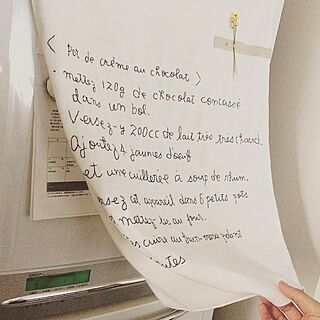 < Pot de crème au chocolat >
・mettez 120g de chocolat concassé
dans un bol.
Versez-y 200cc de lait très très chaud.
Ajoutez 4 jaunes d'oeuf
et une cuillerée à soup de rhum.
appareil dans 6 petits pots
mettez le au four.
cuire au bain-marie